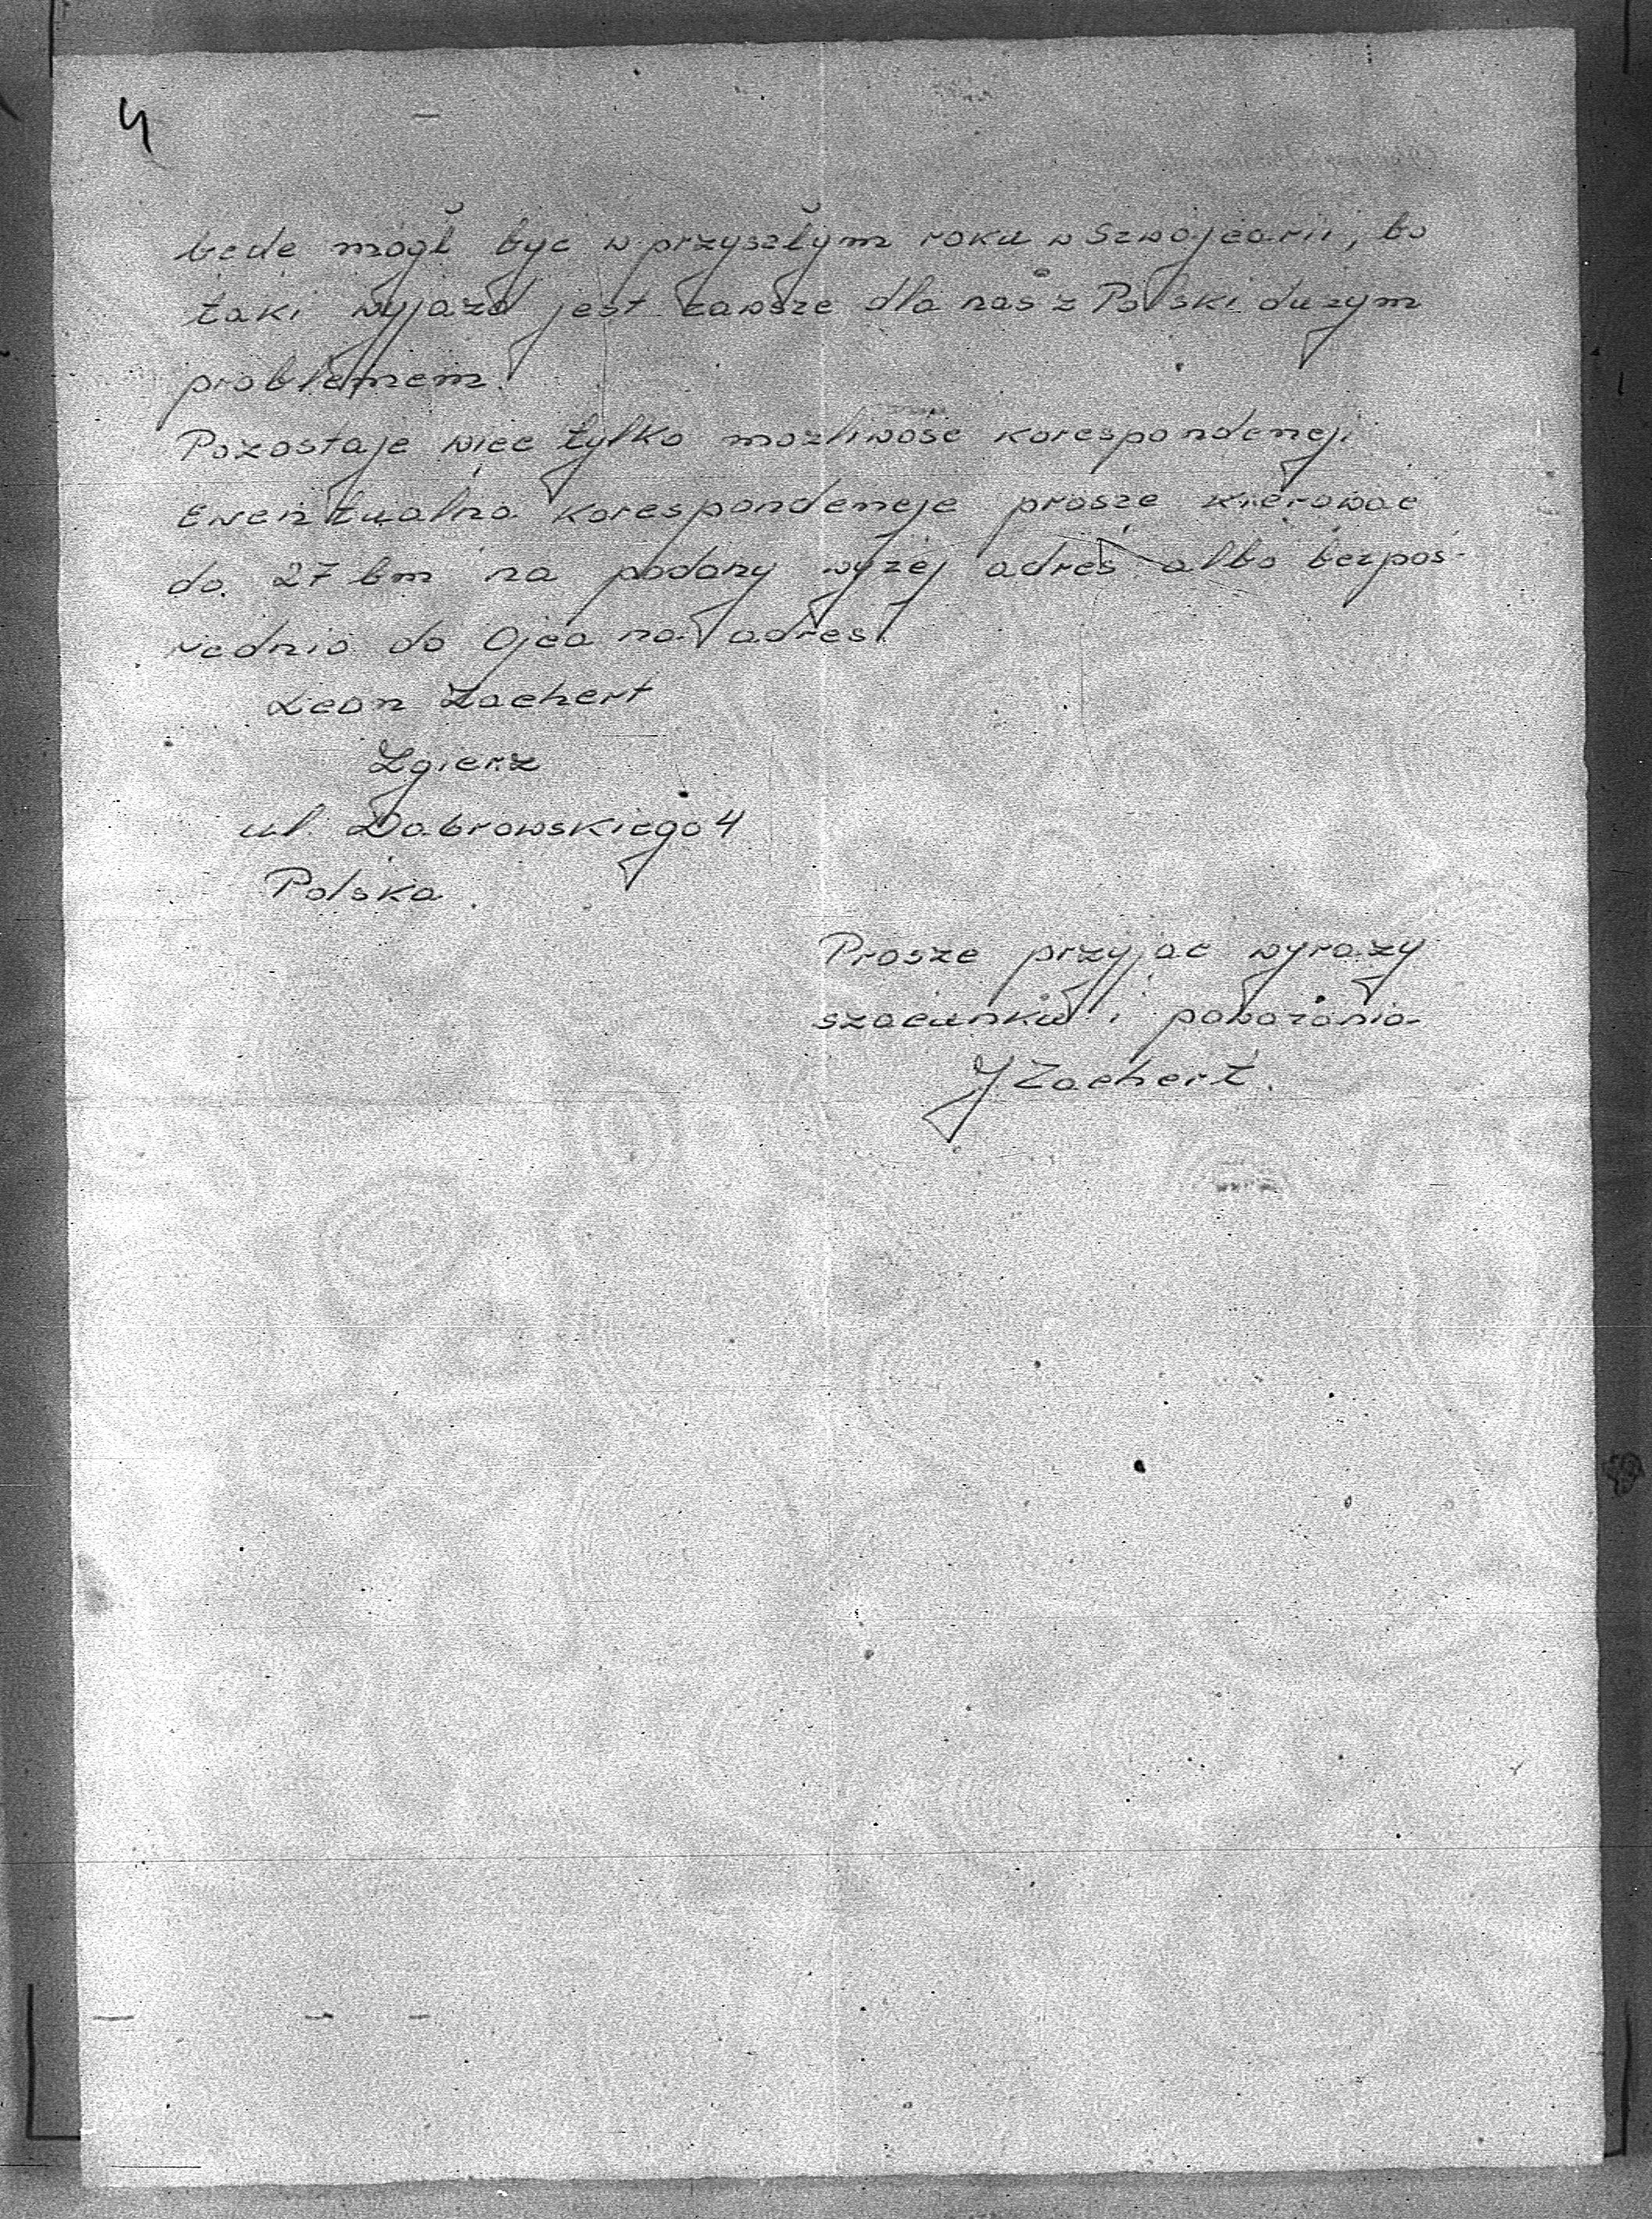 4
bede mógł być w przyszłym roku w Szwajcarii, bo
taki wyjazd jest zawsze dla nas z Polski dużym
problemem.
Pozostaje więc tylko możliwość korespondencji
Ewentualną korespondencje prosze kierować
do 27 bm na podany wyżej adres albo bezpoś-
rednio do Ojca na adres
Leon Zachert
Zgierz
ul. Dabrowskiego 4
Polska.
Prosze przyjąć wyrazy
szacunku i poważania
J Zachert.